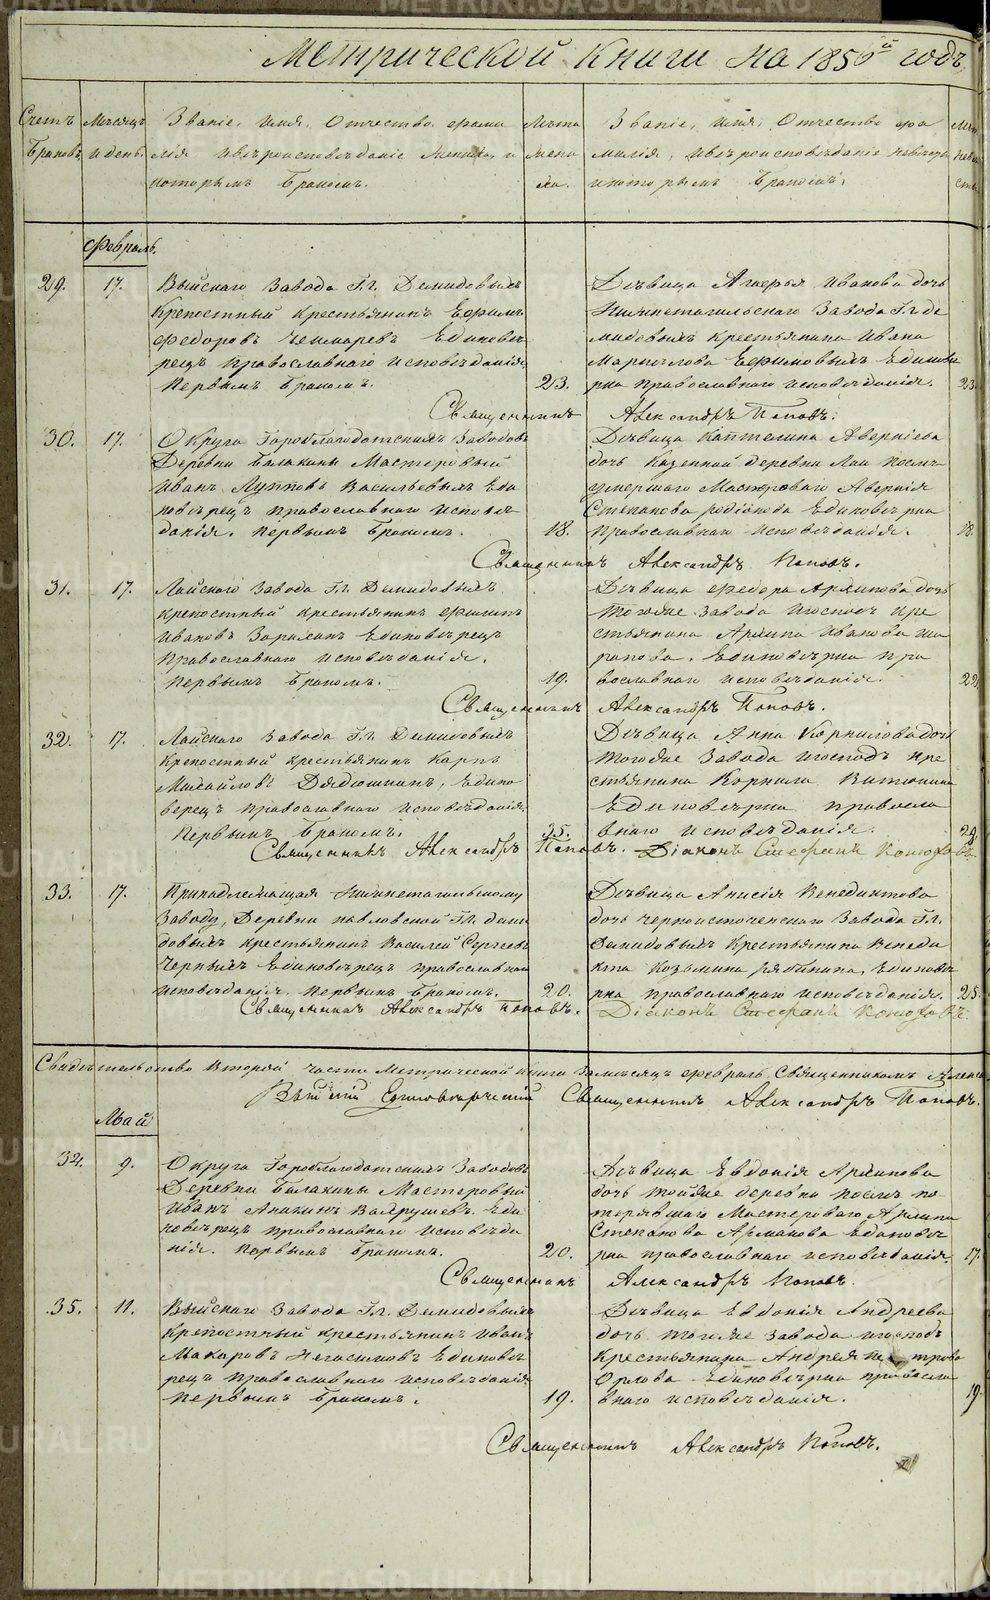 Метрической книги на 1850й годъ
Счетъ Браковъ
Мѣсяцъ и день
Званіе, имя, Отчество, фами
лія и вѣроисповѣданіе жениха, и
которымъ Бракомъ.
Лѣта жени
ха.
Званіе, имя, Отчество фа
милія, и вѣроисповѣданіе невѣсты
и которымъ Бракомъ.
Февраль.
29. 17.
Выйскаго Завода Гг. Демидовыхъ
Крепостный крестьянинъ Ефимъ
Федоровъ Единовѣ
рецъ православнаго исповѣданія
Первымъ Бракомъ. 23.
Дѣвица Иванова дочь
Нижнетагильскаго Завода Гг. де
мидовыхъ крестьянина Ивана
Ефимовыхъ Единовѣ
рка православнаго исповѣданія. 23.
Священникъ Александръ Поповъ.
30. 17.
Округа Гороблагодатскихъ Заводовъ
Деревни Балакины Мастеровый
Иванъ Васильевыхъ Еди
новѣрецъ православнаго исповѣ
данія. Первымъ Бракомъ. 18.
Дѣвица Капте­лина Аверніева
дочь Казенной деревни Лаи послѣ
умершаго Мастероваго Авернія
Степанова Родіонова Единовѣрка
Православнаго исповѣданія. 18.
Священникъ Александръ Поповъ.
31. 17.
Лайскаго Завода Гг. Демидовыхъ
крепостный крестьянинъ Филипъ
Ивановъ Единовѣрецъ
Православнаго исповѣданія.
Первымъ Бракомъ. 19.
Дѣвица Федора Архипова дочь
тогоже завода и господъ кре
стьянина Архипа Иванова Ша
рапова. Единовѣрка пра
вославнаго исповѣданія. 22.
Священникъ Александръ Поповъ.
32. 17.
Лайскаго Завода Гг. Демидовыхъ
Крепостный крестьянинъ Карпъ
Михайловъ Дядюшкинъ, Едино
верецъ православнаго исповѣданія.
Первымъ Бракомъ. 35.
Дѣвица Анна Корнилова дочь
тогоже Завода и господъ кре
стьянина Корнила Витюнина
Единовѣрка правосла
внаго исповѣданія. 29.
Священникъ Александръ Поповъ. Діаконъ Стефанъ Конюховъ.
33. 17.
Принадлежащая Нижнетагильскому
Заводу, Деревни Павловской Гг. деми
довыхъ крестьянинъ Василей Сергеевъ
Черныхъ Единовѣрецъ православнаго
исповѣданія. Первымъ Бракомъ. 20.
Дѣвица Анисія Венедиктова
дочь черноисточенскаго Завода Гг.
Демидовыхъ Крестьянина Венеди
кта Козьмина Рябинина, Единовѣ
рка православнаго исповѣданія. 25.
Священникъ Александръ Поповъ. Діаконъ Стефанъ Конюховъ.
Свидѣтельство Второй части Метрической книги за мѣсяцъ Февраль Священникомъ
Единовѣрческій Священникъ Александръ Поповъ.
Май
34. 9.
Округа Гороблагодатскихъ Заводовъ
Деревни Балакины Мастеровый
Иванъ Аникинъ Вахрушевъ. Еди
новѣрецъ православнаго исповѣда
нія. Первымъ Бракомъ. 20.
Дѣвица Евдокія Архипова
дочь тойже деревни послѣ по
мастероваго Архипа
Степанова Единовѣ
рка православнаго исповѣданія. 17.
Священникъ Александръ Поповъ.
35. 11.
Выйскаго Завода Гг. Демидовыхъ
Крепостный крестьянинъ Иванъ
Макаровъ Негасимовъ Единовѣ
рецъ православнаго исповѣданія
Первымъ Бракомъ. 19.
Дѣвица Евдокія Андреева
дочь тогоже завода и господъ
Крестьянина Андрея Петрова
Орлова Единовѣрка правосла
внаго исповѣданія. 19.
Священникъ Александръ Поповъ.
METRIKI.GASO-URAL.RU